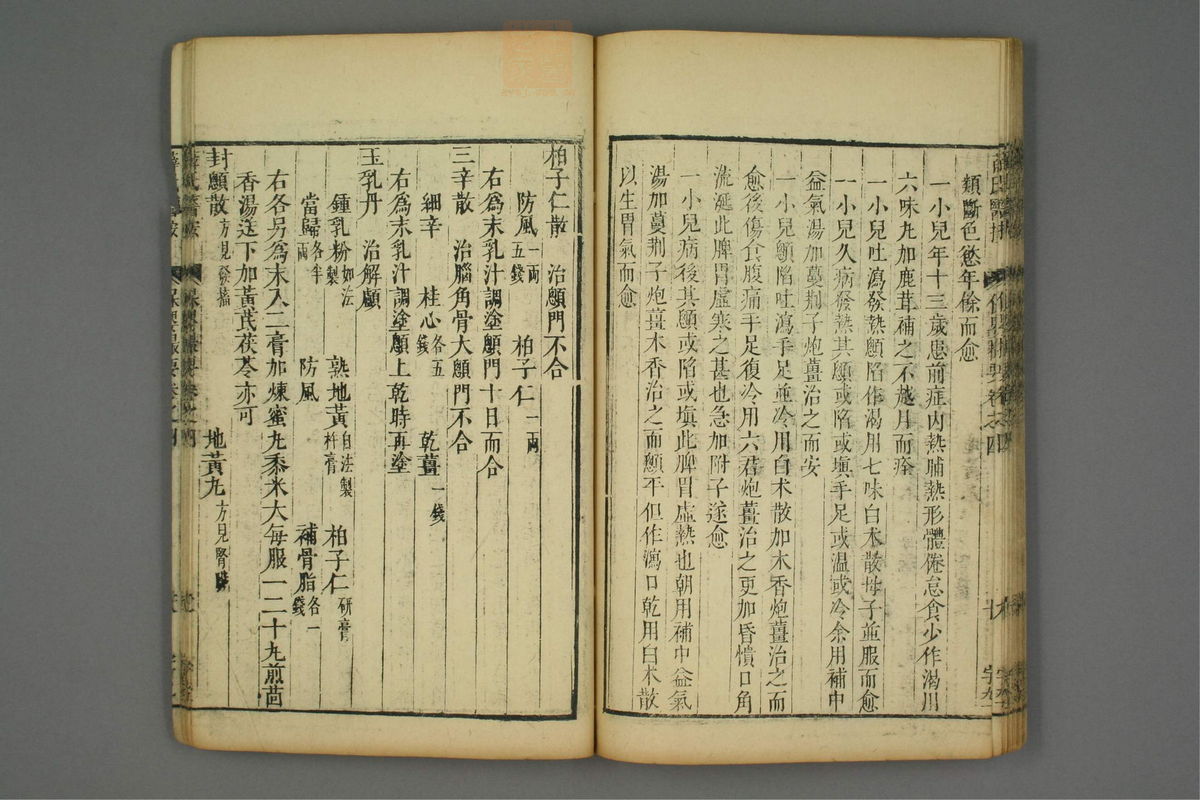 類斷色慾年餘而愈
一小兒年十三歲患前症內熱脯熱形體倦怠食少作渴用
六味丸加鹿茸補之不越月而痊
一小兒吐瀉發熱顖陷作渴用七味白朮散母子並服而愈
一小兒久病發熱其顖或陷或塡手足或温或冷余用補中
益氣湯加蔓荆子炮薑治之而安
一小兒顖陷吐瀉手足並冷用白朮散加木香炮薑治之而
愈後傷食腹痛手足復冷用六君炮薑治之更加昏憒口角
流涎此脾胃虛寒之甚也急加附子遂愈
一小兒病後其顖或陷或塡此脾胃虛熱也朝用補中益氣
湯加蔓荆子炮薑木香治之而顖平但作瀉口乾用白朮散
以生胃氣而愈
柏子仁散　治顖門不合
防風一兩五錢　柏子仁一兩
右爲末乳汁調塗顖門十日而合
三辛散　治腦角骨大顖門不合
細辛　桂心各五錢　乾薑一錢
右爲末乳汁調塗顖上乾時再塗
玉乳丹　治解顱
鍾乳粉如法製　熟地黃自法製杵膏　柏子仁研膏
當歸各半兩　防風　補骨脂各一錢
右各另爲末入二膏加煉蜜丸黍米大每服一二十丸煎茴
香湯送下加黃芪茯苓亦可
封顖散方見發搐　地黃丸方見腎臟